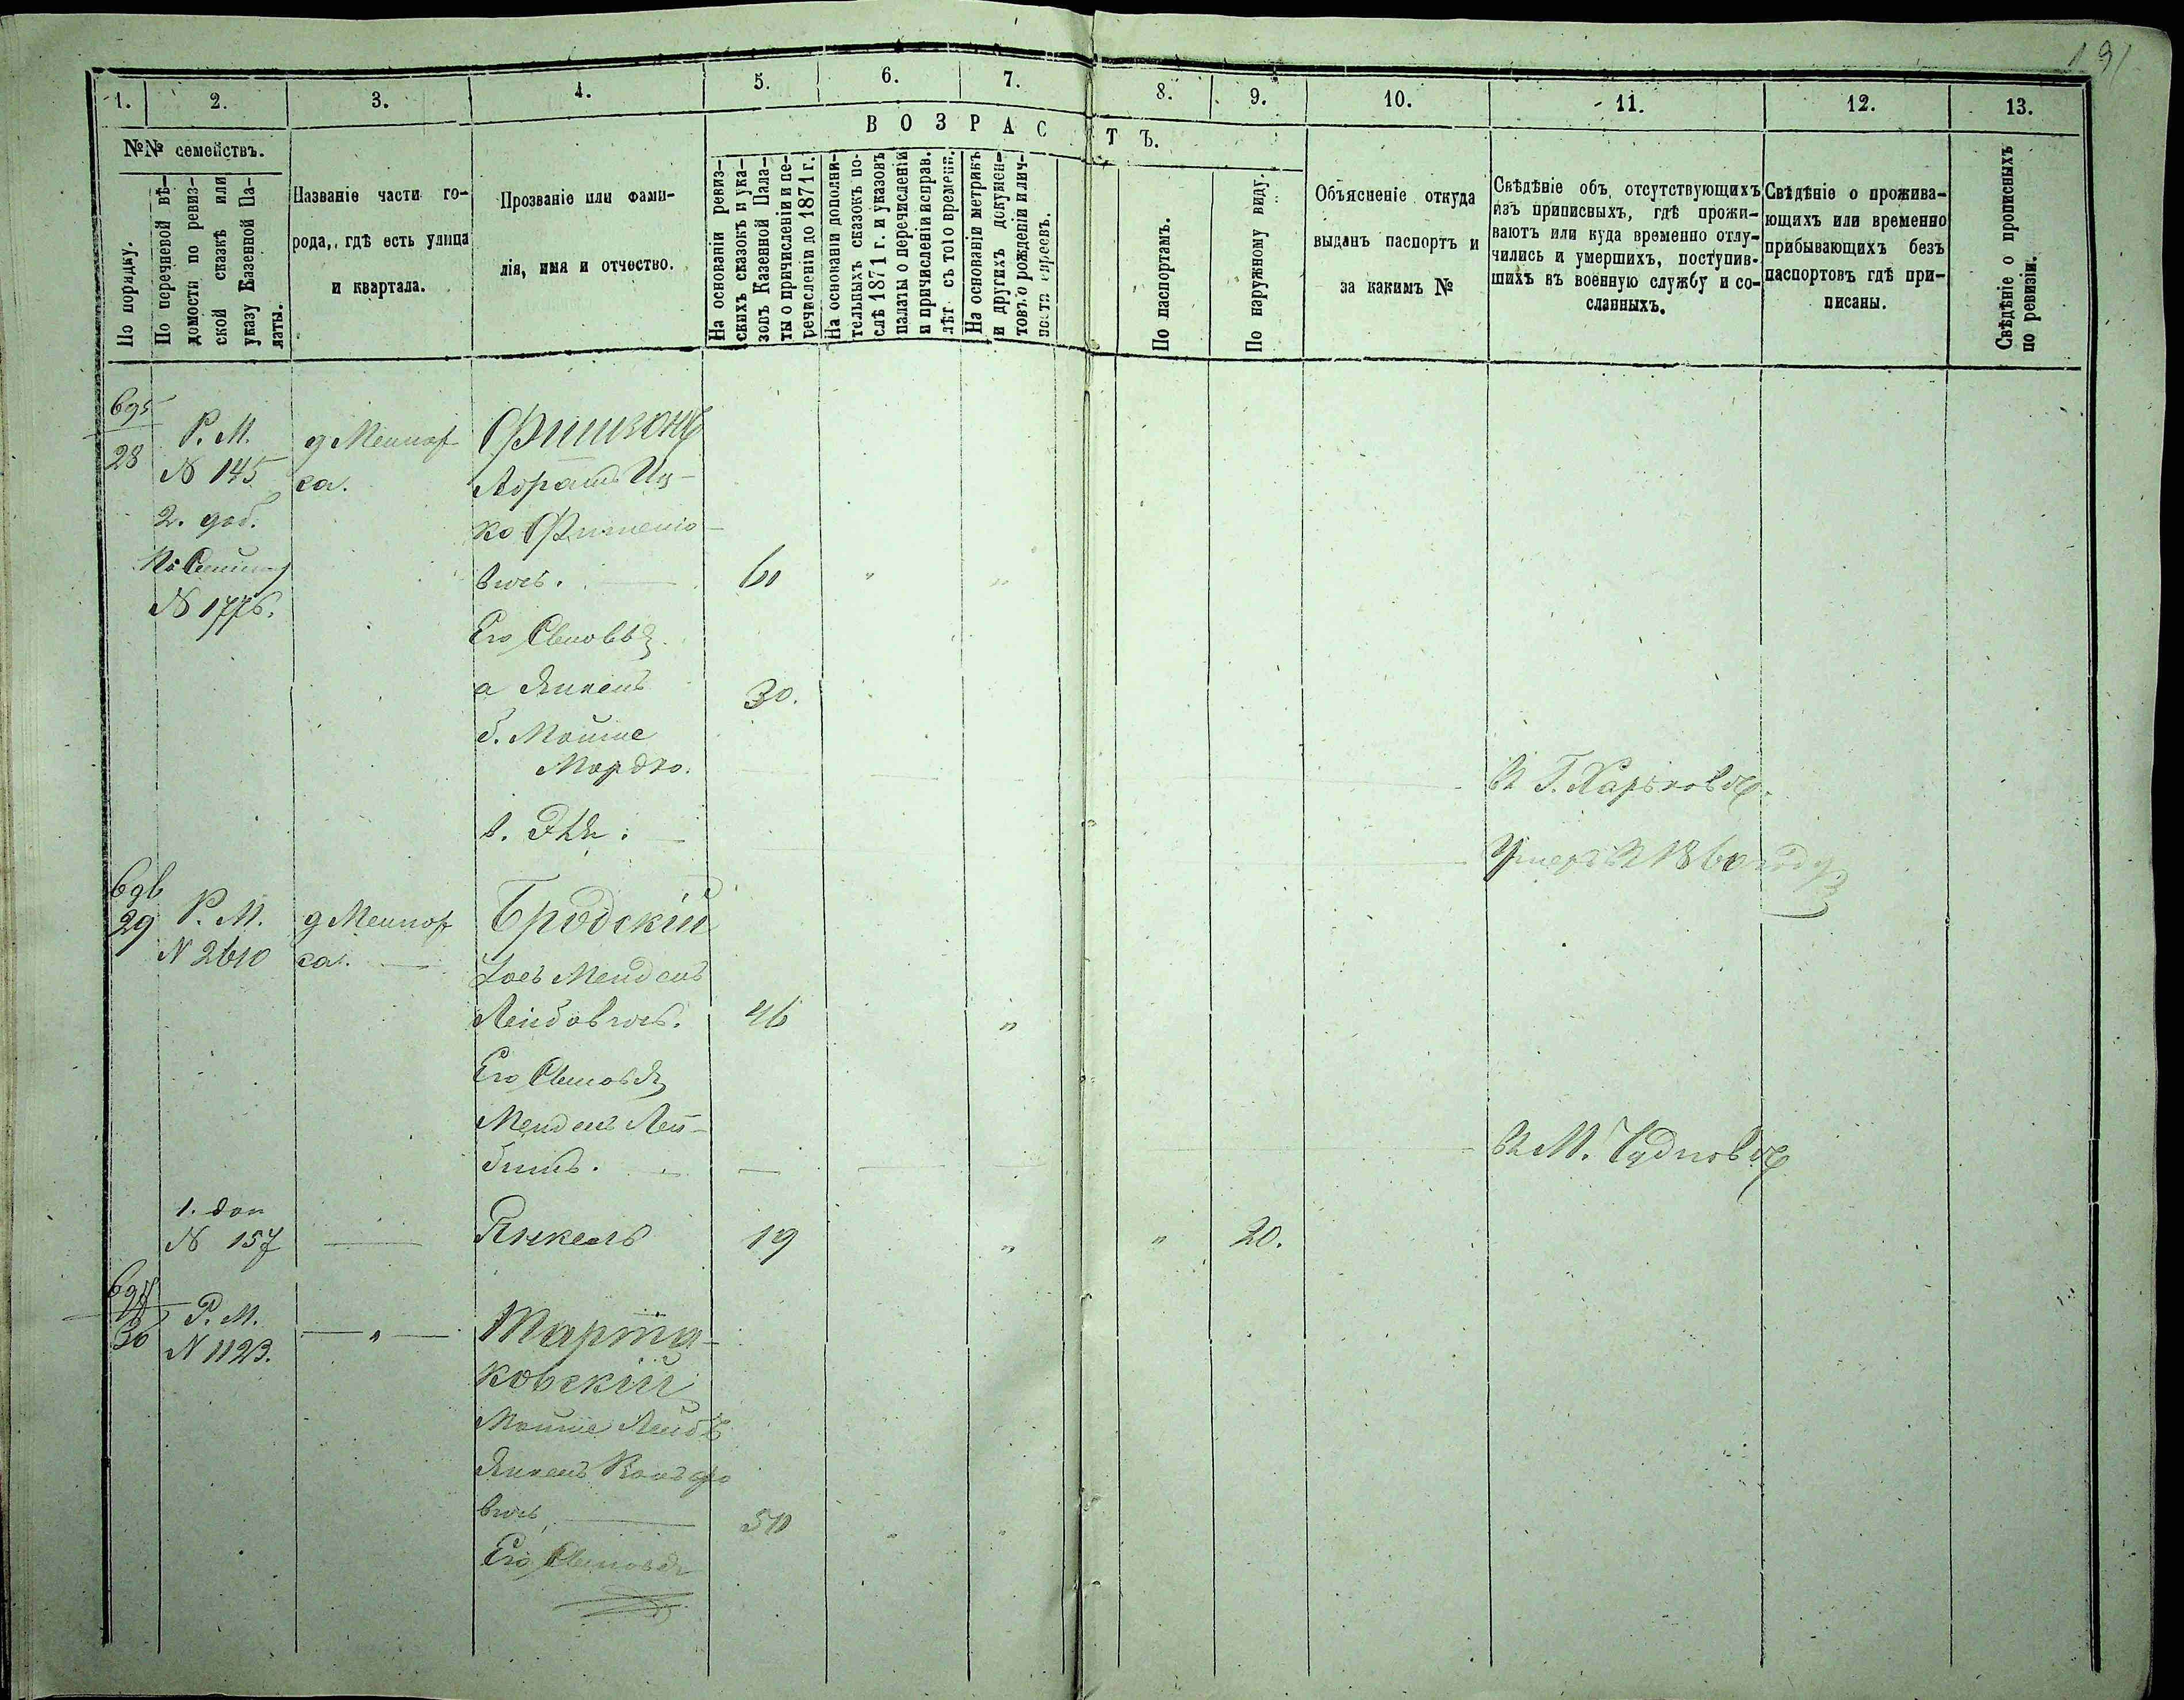 191
1. 2. 3. 4. 5. 6. 7. 8. 9. 10. 11. 12. 13.
№№ семействъ.
ВОЗРАСТЪ.
По порядку.
По перечневой вѣ-
домости по ревиз-
ской сказкѣ или
указу Казенной Па-
латы.
Названіе части го-
рода, гдѣ есть улица
и квартала.
Прозваніе или фами-
лія, имя и отчество.
На основаніи ревиз-
скихъ сказокъ и ука-
зовъ Казенной Пала-
ты о причисленіи и пе-
речисленіи до 1871 г.
На основаніи дополни-
тельныхъ сказокъ по-
слѣ 1871 г. и указовъ
палаты о перечисленіи
и причисленіи исправ.
лѣт съ того времени.
На основаніи метрикъ
и другихъ докумен-
товъ о рожденіи и лич-
ности евреевъ.
По паспортамъ.
По наружному виду.
Объясненіе откуда
выданъ паспортъ и
за какимъ №
Свѣдѣніе объ отсутствующихъ
изъ приписныхъ, гдѣ прожи-
ваютъ или куда временно отлу-
чились и умершихъ, поступив-
шихъ въ военную службу и со-
сланныхъ.
Свѣдѣніе о прожива-
ющихъ или временно
прибывающихъ безъ
паспортовъ гдѣ при-
писаны.
Свѣдѣніе о прописныхъ
по ревизіи.
695
28 Р. М.
№ 145
2. доб.
№ 1776.
Абрамъ Иц-
ко
вичъ. 60 " "
Его Сыновья
а Янкель 30.
б. Мошие
Мордко. В Г. Харьковѣ.
в. Умеръ в 1860 году
696
29 Р. М. Бродскій
N 2610 са.
Мендель
Лейбовичъ. 46 "
Его Сыновья
Мендель Лей-
бишъ. В М. Чудновѣ
1. доп
№ 157 Янкель 19 " " 20.
697
30 Р. М. " Марта-
N 1123. ковскій
Мошие Лейбъ
Янкель
вичъ 50
Его Сыновья